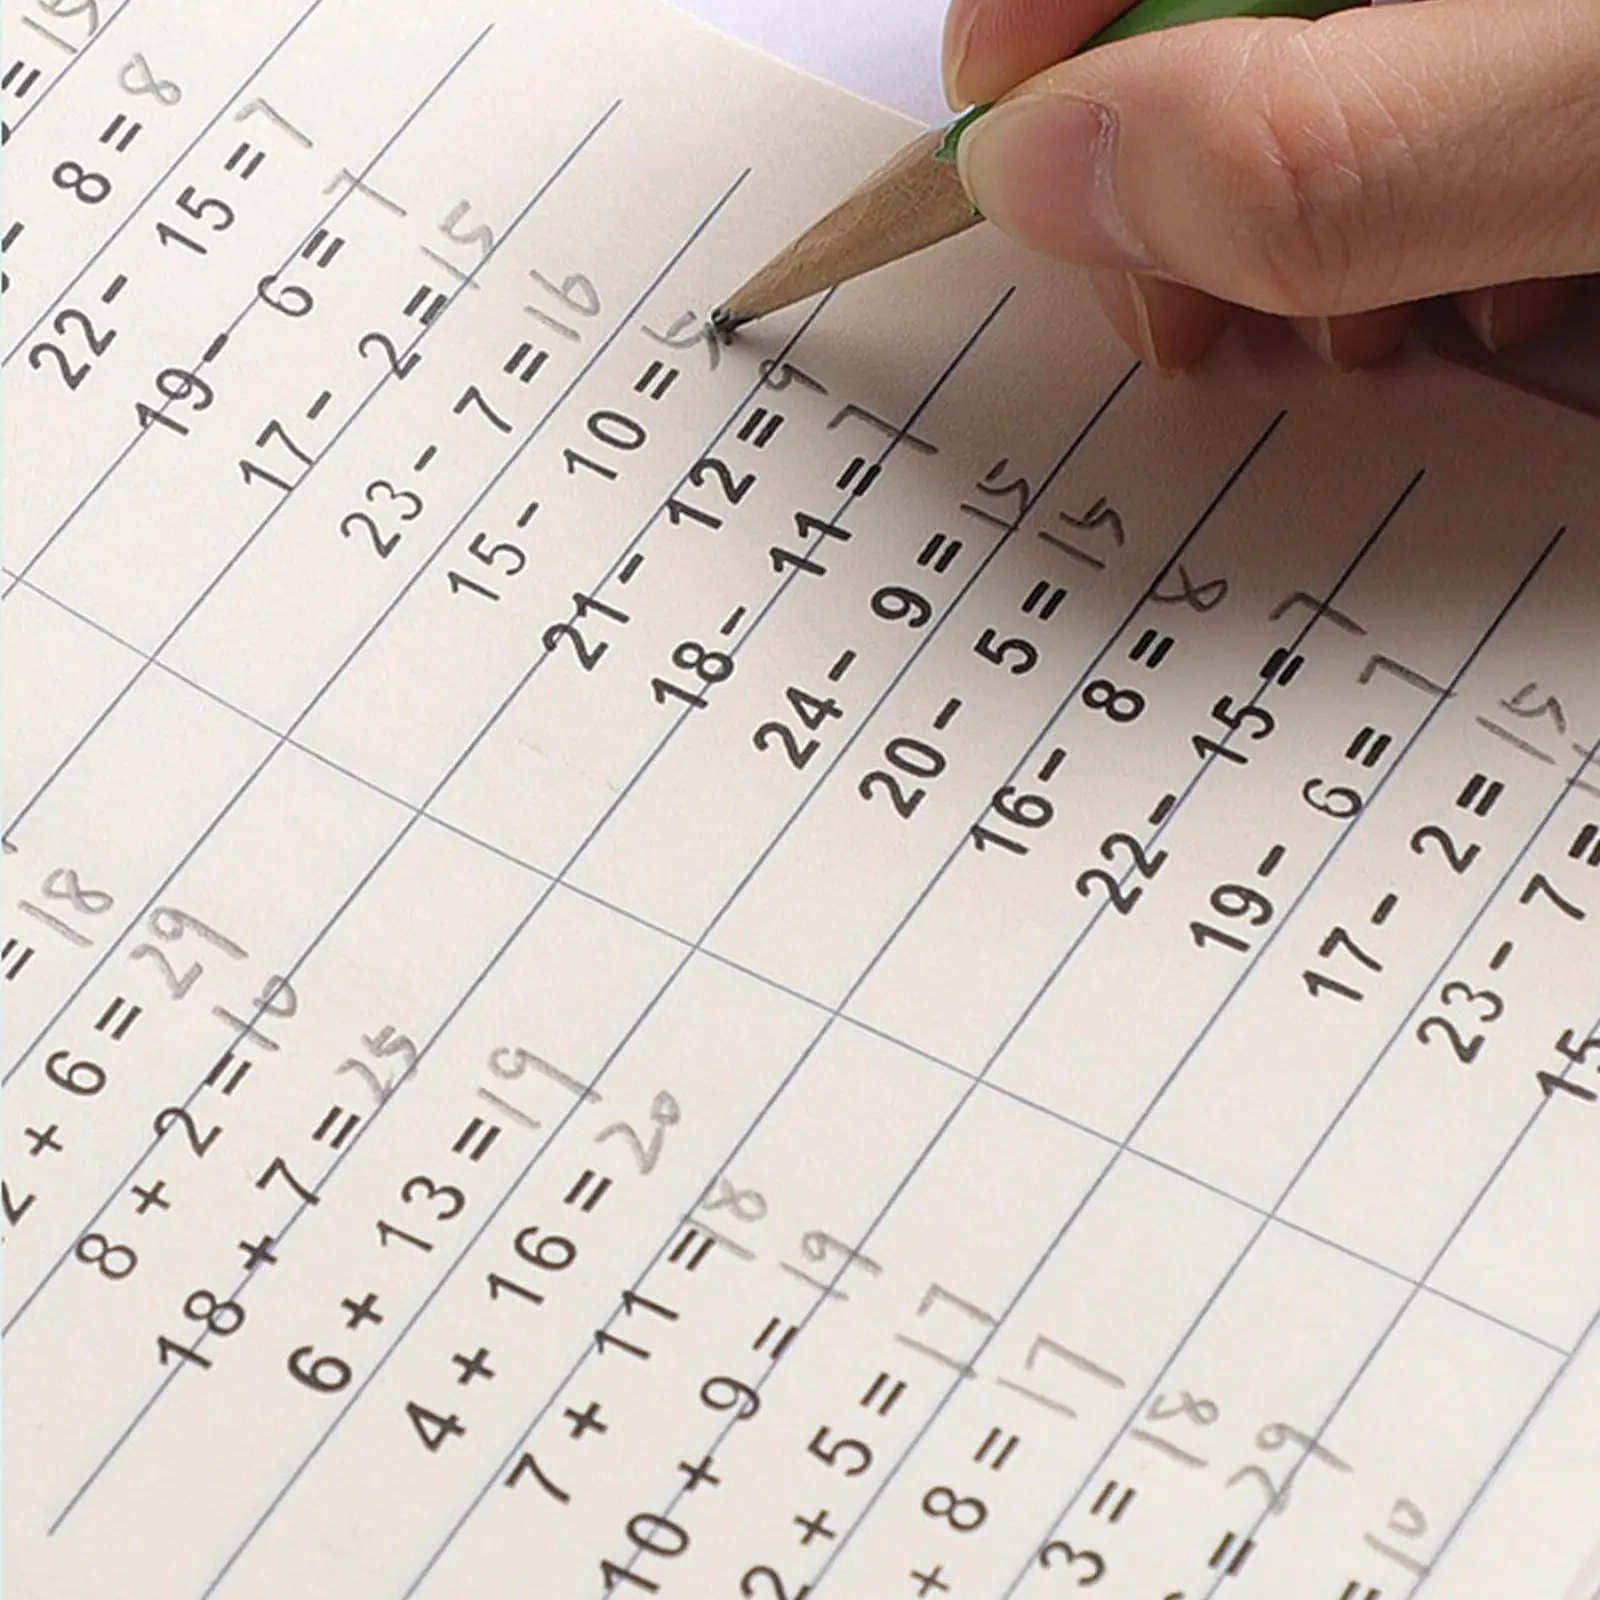 8 = 8
22 - 15 = 7
19 - 6 = 7
17 - 2 = 15
23 - 7 = 16
15 - 10 =
21 - 12 = 9
18 - 11 = 7
24 - 9 = 15
20 - 5 = 15
16 - 8 = 8
22 - 15 = 7
19 - 6 = 7
17 - 2 = 15
23 - 7 =
15
= 18
2 + 6 = 29
8 + 2 = 10
18 + 7 = 25
6 + 13 = 19
4 + 16 = 20
7 + 11 = 18
10 + 9 = 19
2 + 5 = 17
+ 8 = 17
3 = 18
= 29
= 10